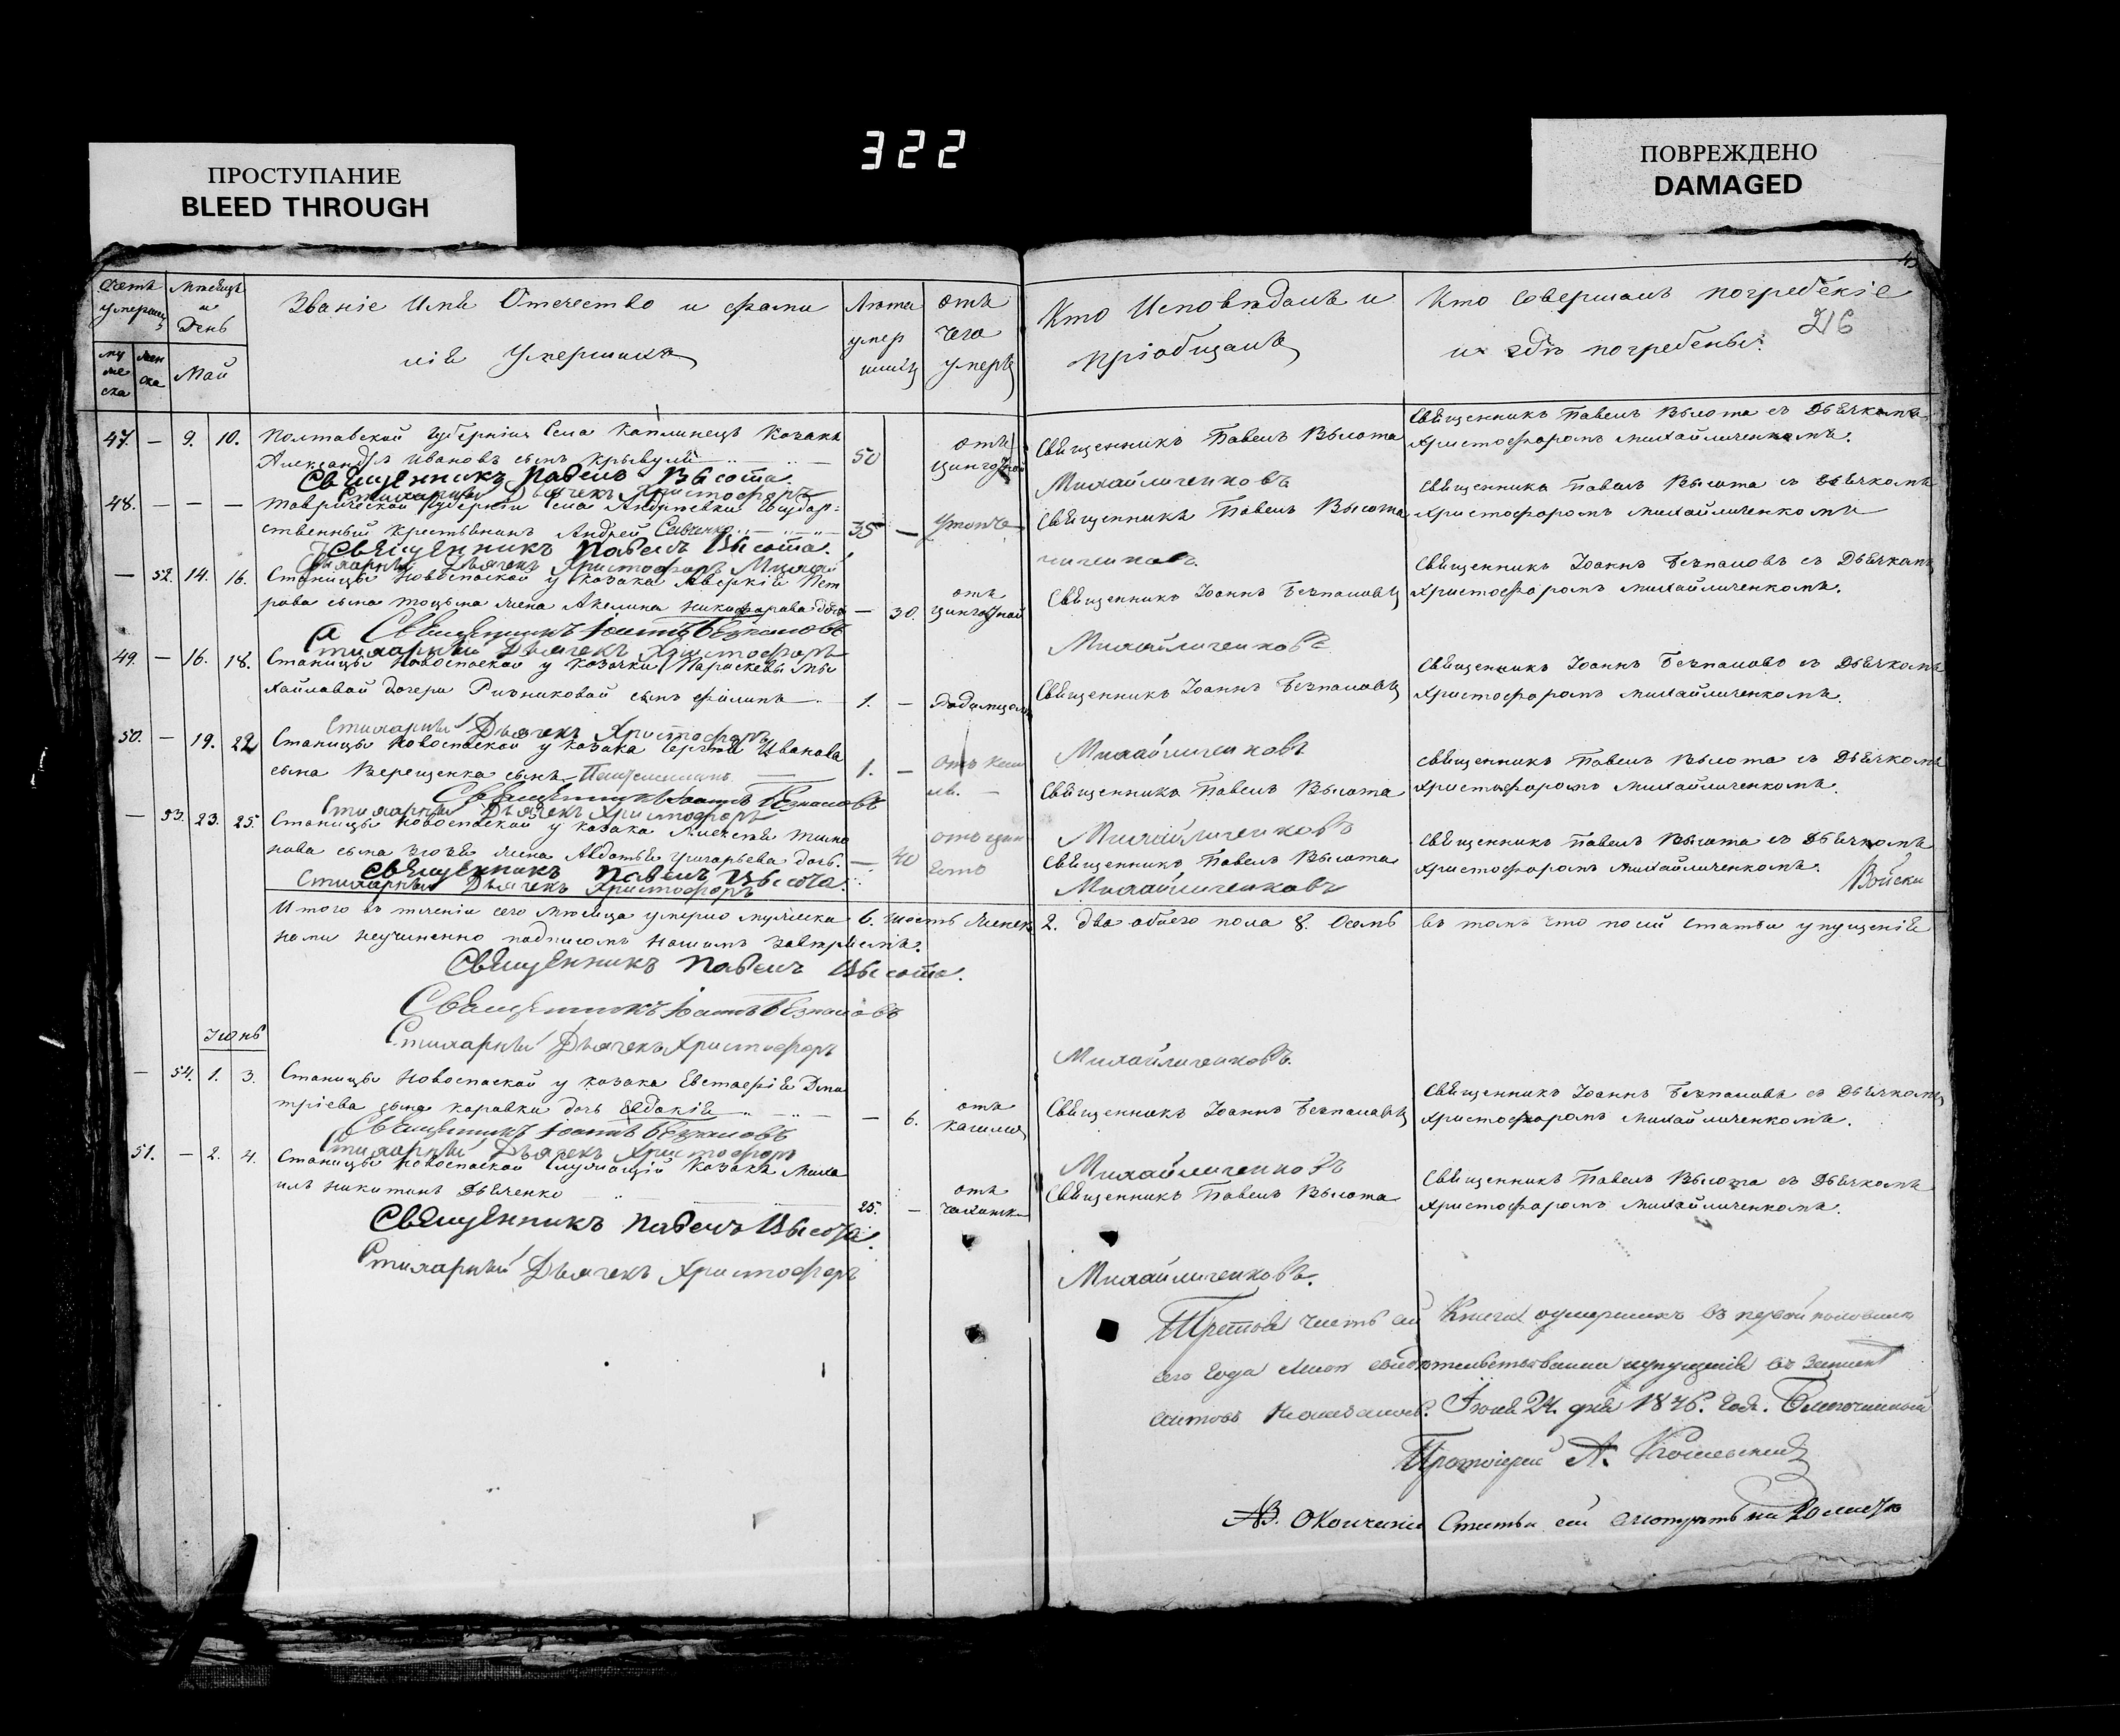 322
ПРОСТУПАНИЕ
BLEED THROUGH
ПОВРЕЖДЕНО
DAMAGED
216
Счетъ умершихъ
Мѣсяцъ и День
Званіе Имя Отечество и фами
лія Умершихъ
Лѣта умер шихъ
отъ чего умеръ
Кто Исповѣдалъ и
пріобщалъ
Кто Совершалъ погребеніе
и гдѣ погребены.
му же ска
жен ска
Май
47. — 9. 10. Полтавской Губерніи Села Каплинецъ Козакъ
Александръ Ивановъ сынъ Крывуля 50 отъ цинготной
Священникъ Павелъ Высота
Священникъ Павелъ Высота съ Дьячкомъ
Христофоромъ Михайличенкомъ.
Священникъ Павелъ Высота.
Стихарный Дьячекъ Христофоръ Михайличенковъ
48. — — — Таврической Губерніи Села Андрѣевки Государ-
ственный Крестьянинъ Андрей Савченко 35 —
Священникъ Павелъ Высота
Священникъ Павелъ Высота съ Дьячкомъ
Христофоромъ Михайличенкомъ
Священникъ Павелъ Высота.
Стихарный Дьячекъ Христофоръ Михай личенковъ.
— 52. 14. 16. Станицы Новоспаской у козака Аверкія Пет
рова сына жена Акелина Никифорова дочь — 30. отъ цинготной
Священникъ Іоаннъ Безпаловъ
Священникъ Іоаннъ Безпаловъ съ Дьячкомъ
Христофоромъ Михайличенкомъ.
Священникъ Іоаннъ Безпаловъ
Стихарный Дьячекъ Христофоръ Михайличенковъ
49. — 16. 18. Станицы Новоспаской у козачки Параскевы Ми
хайловой дочери Ризниковой сынъ Филипъ 1. —
Священникъ Іоаннъ Безпаловъ
Священникъ Іоаннъ Безпаловъ съ Дьячкомъ
Христофоромъ Михайличенкомъ.
Стихарный Дьячекъ Христофоръ Михайличенковъ
50. — 19. 22 Станицы Новоспаской у козака Сергѣя Иванова
сына Верещенка сынъ 1. —
Священникъ Павелъ Высота
Священникъ Павелъ Высота съ Дьячкомъ
Христофоромъ Михайличенкомъ.
Священникъ Іоаннъ Безпаловъ
Стихарный Дьячекъ Христофоръ Михайличенковъ
— 53. 23. 25. Станицы Новоспаской у козака Алексѣя
сына жена Авдотья Григорьева дочь. — 40
Священникъ Павелъ Высота
Священникъ Павелъ Высота съ Дьячкомъ
Христофоромъ Михайличенкомъ.
Войска
Священникъ Павелъ Высота.
Стихарный Дьячекъ Христофоръ Михайличенковъ
Итого въ теченіи сего мѣсяца умерло мужеска 6. шесть женск 2. два обоего пола 8. Осемь въ томъ что посей статьи упущенія
нами неучиненно подписомъ нашимъ
Священникъ Павелъ Высота.
Священникъ Іоаннъ Безпаловъ
Стихарный Дьячекъ Христофоръ Михайличенковъ.
Іюнь
— 54. 1. 3. Станицы Новоспаской у козака Евстафія Дми
тріева сына Коравки дочь Евдокія — 6. отъ кашля
Священникъ Іоаннъ Безпаловъ
Священникъ Іоаннъ Безпаловъ съ Дьячкомъ
Христофоромъ Михайличенкомъ.
Священникъ Іоаннъ Безпаловъ
Стихарный Дьячекъ Христофоръ Михайличенковъ
51. — 2. 4. Станицы Новоспаской служащій Козакъ Миха
илъ Никитинъ Дяченко 25. — отъ чахотки
Священникъ Павелъ Высота
Священникъ Павелъ Высота съ Дьячкомъ
Христофоромъ Михайличенкомъ.
Священникъ Павелъ Высота.
Стихарный Дьячекъ Христофоръ Михайличенковъ.
Третья часть сей Книги оумершихъ въ первой половинѣ
сего года мною свидѣтельствована упущенія въ
Іюня 24. дня 1846. года. Благочинный
Протоіерей А.
NB. Окончаніе Статьи сей смотрѣть на